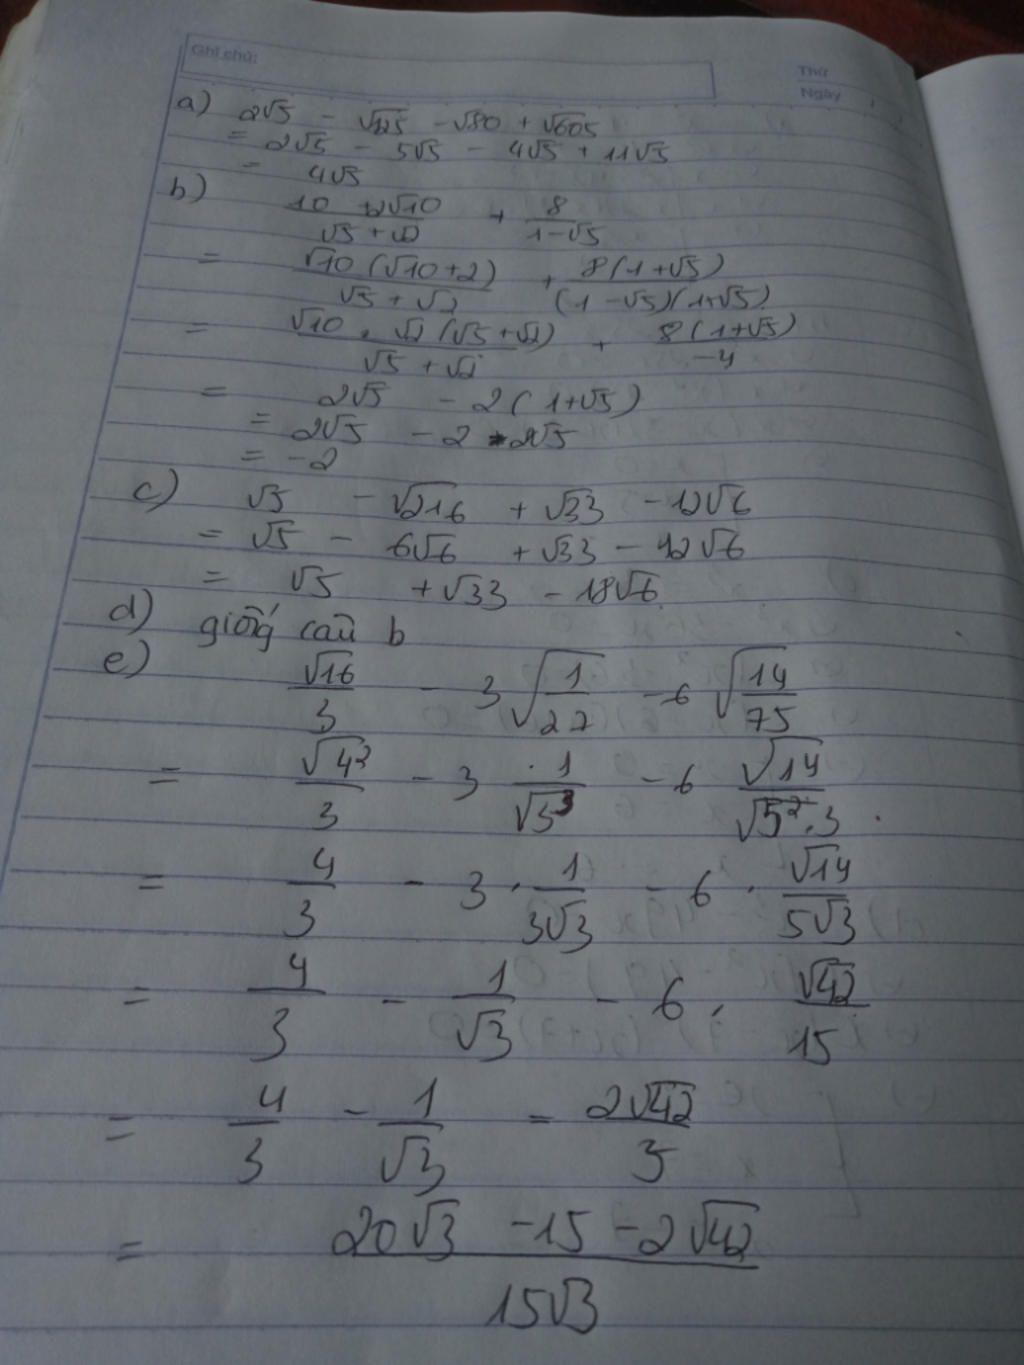 Ghi chú:
Thứ
Ngày
a) 2√5 - √125 - √80 + √605
= 2√5 - 5√5 - 4√5 + 11√5
= 4√5
b) (10 + 2√10)/(√5 + √2) + 8/(1-√5)
= (√10 (√10+2))/(√5 + √2) + (8(1+√5))/((1-√5)(1+√5))
= (√10 . √2 (√5+√2))/(√5 + √2) + (8(1+√5))/(-4)
= 2√5 - 2(1+√5)
= 2√5 - 2 - 2√5
= -2
c) √5 - √216 + √33 - 12√6
= √5 - 6√6 + √33 - 12√6
= √5 + √33 - 18√6
d) giống câu b
e) √16/3 - 3√(1/27) - 6√(14/75)
= √4²/3 - 3 . 1/√3³ - 6 √14/√5².3
= 4/3 - 3 . 1/3√3 - 6 . √14/5√3
= 4/3 - 1/√3 - 6 . √42/15
= 4/3 - 1/√3 - 2√42/5
= (20√3 - 15 - 2√42)/15√3